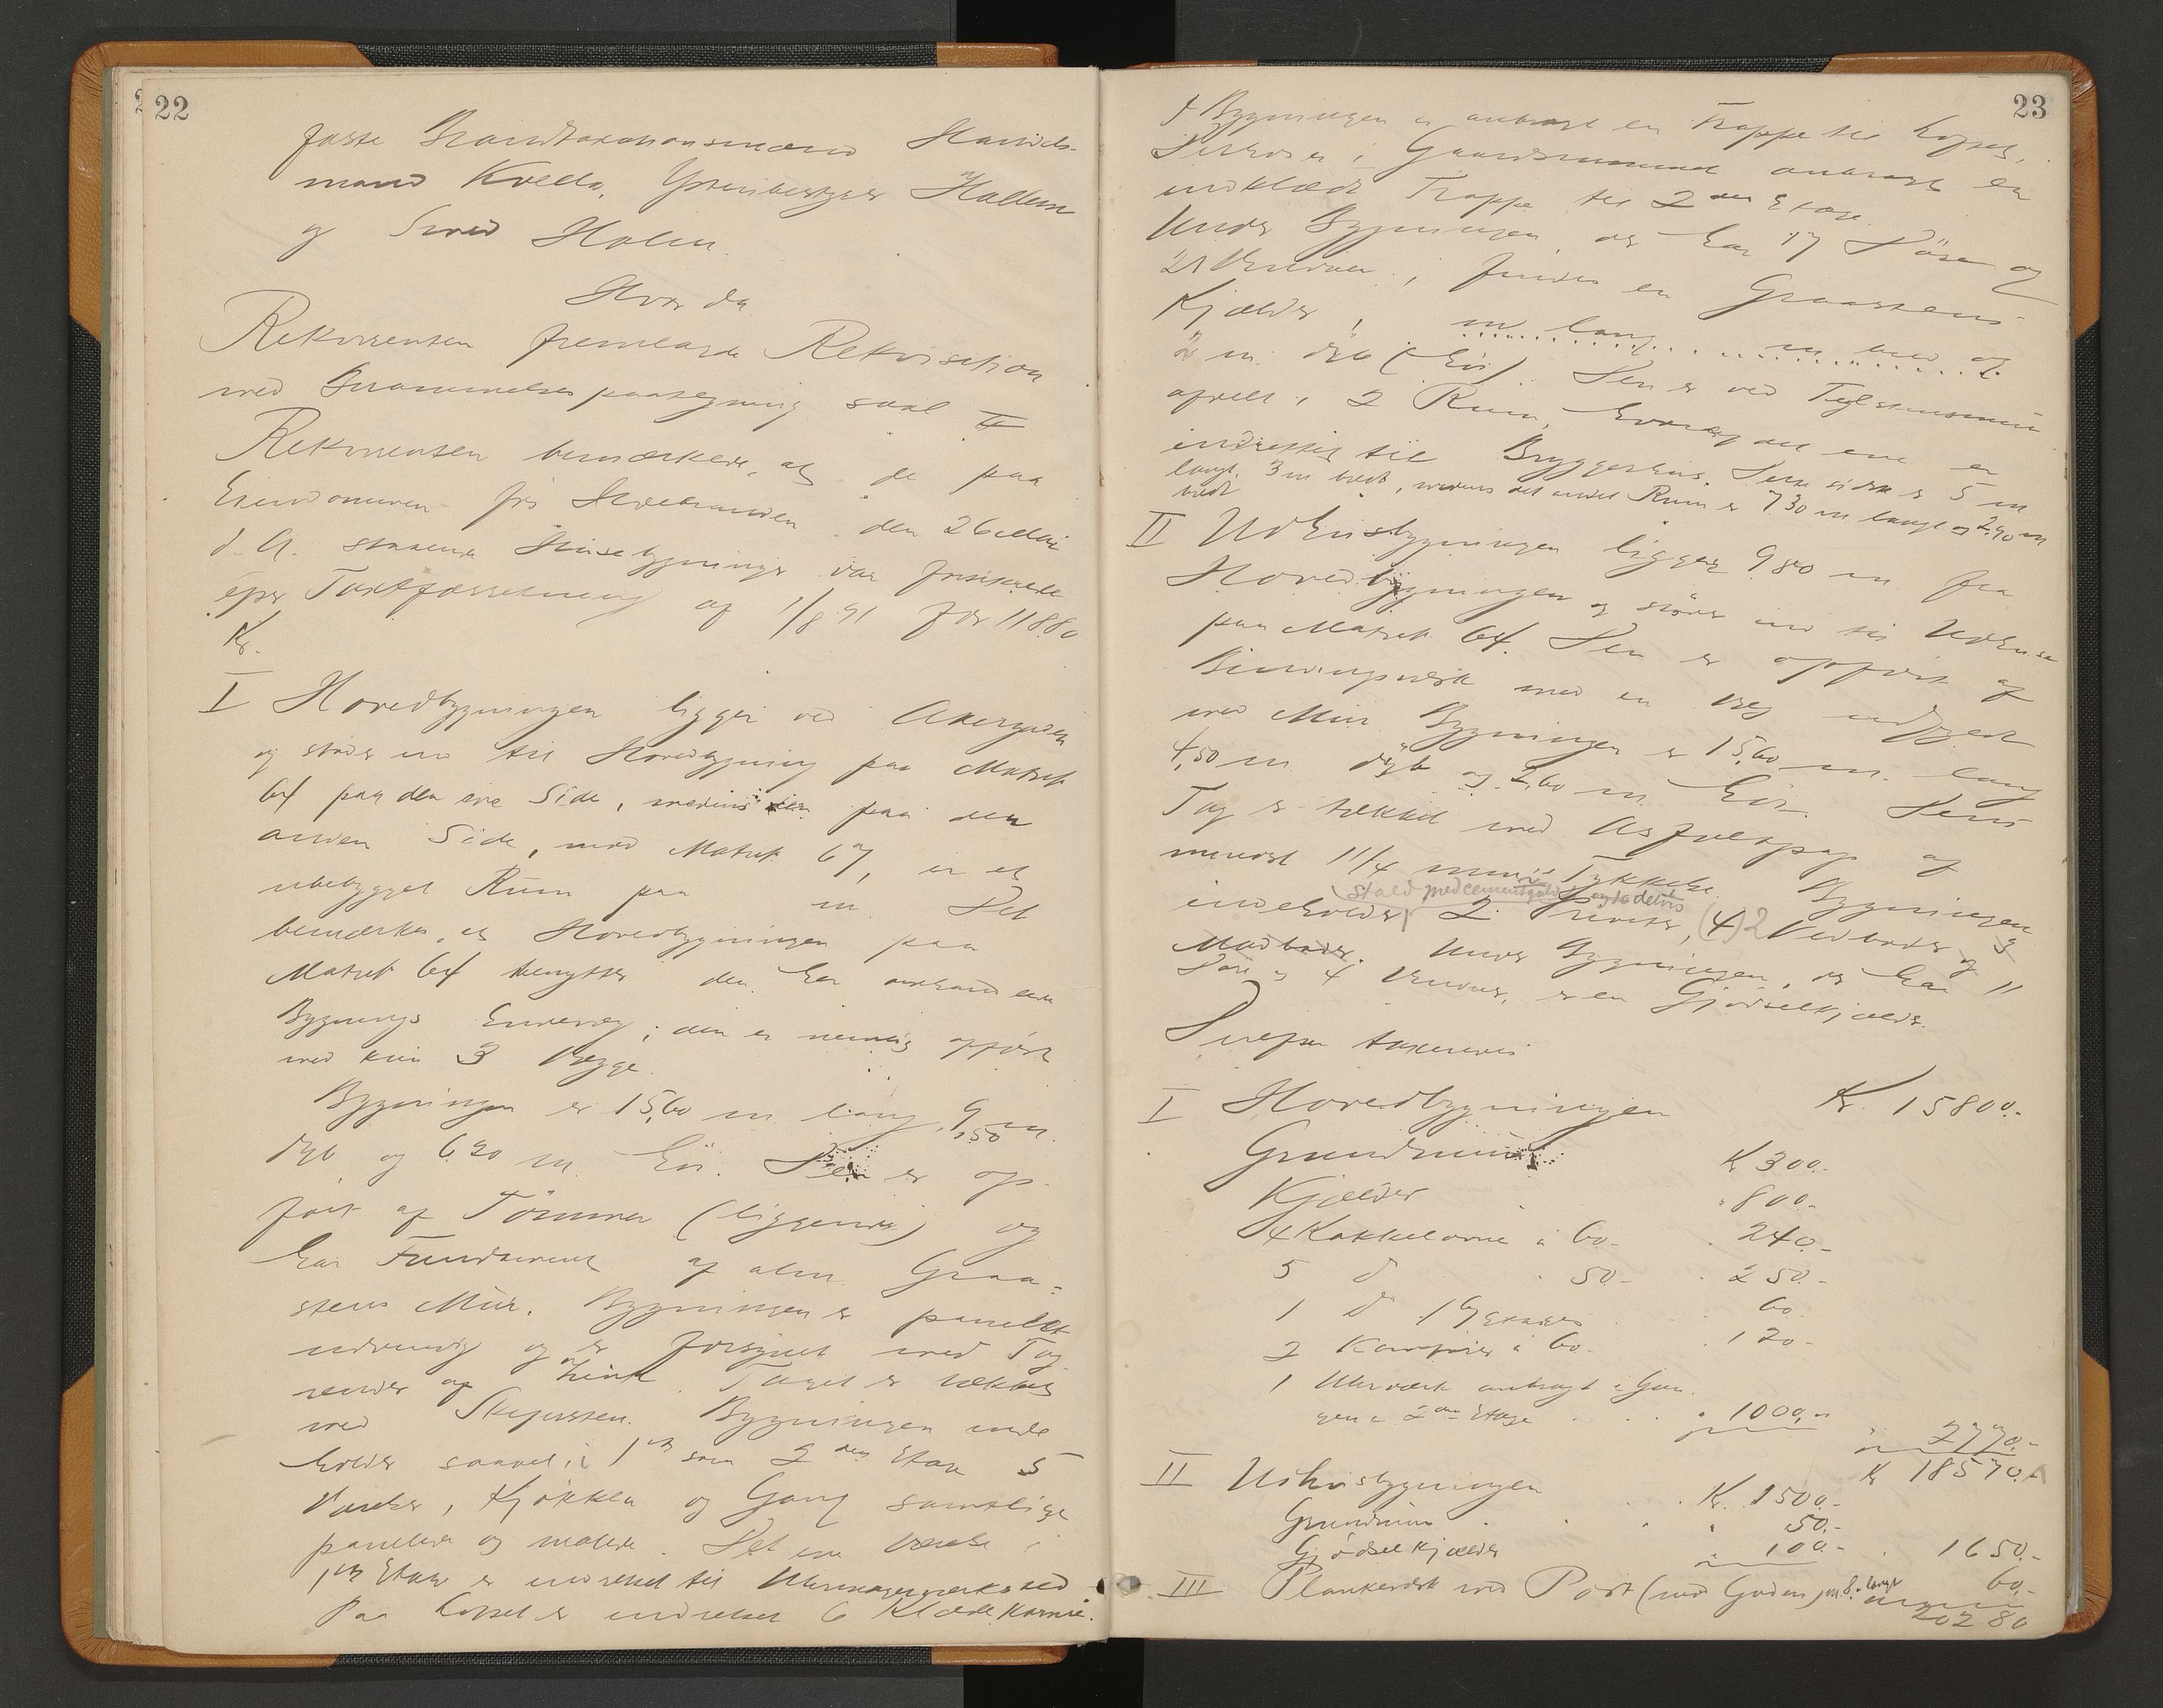 22
faste Brandtaxationsmænd Handels-
mand Kvello, Gjæstgiver Hallem
og Smed Holm.
Hvor da
Rekvirenten fremlagde Rekvisition
med Berammelsespaategning saal. II
Rekvirenten bemærkede, at de paa
Eiendommen før Ildebranden den 26 Mai
d. A. staaende Husebygninger var forsikrede
efter Taxtforretning af 1/8 91 for 11880
Kr.
I Hovedbygningen ligger ved
og støder ind til Hovedbygning paa Matrik
64 paa den ene Side, medens der paa den
anden Side, mod Matrik 67, er et
ubebygget Rum paa m. Det
bemærkes, at Hovedbygningen paa
Matrik 64 benytter den her omhandlede
Bygnings Endevæg; den er nemlig opført
med kun 3 Vægge.
Bygningen er 15,60 m lang, 9,50 m
dyb og 6,20 m. høi. Den er op-
ført af Tømmer (liggende) og
har Fundament af alm. Graa-
stens Mur. Bygningen er panelt
udvendig og er forsynet med Tag-
render af Zink. Taget er tækket
med Skifersten. Bygningen inde
holder saavel i 1ste som 2den Etage 5
Værelser, Kjøkken og Gang samtlige
panelede og malede. Det ene Værelse i
1ste Etage er indredet til Uhrmagerværksted
Paa Loftet er indredet 6 Klædekamre.
23
I Bygningen er anbragt en Trappe til Loftet,
Desuden er i Gaardsrummet anbragt en
indklædt Trappe til 2den Etage
Under Bygningen, der har 17 Døre og
21 Vinduer, findes en Graastens-
Kjælder, m lang, m bred og
2 m dyb (høi). Den er ved Teglstensmur
afdelt i 2 Rum, hvoraf det ene er
indrettet til Bryggerhus. Dette sidste er 5 m
langt, 3 m bredt, medens det andet Rum er 7,30 m langt og 2,90 m
bredt
II Udhusbygningen ligger 9,80 m fra
Hovedbygningen og støder ind til Udhuset
paa Matrik 64. Den er opført af
Bindingsværk med en Væg udfyldt
med Mur. Bygningen er 15,60 m. lang
4,50 m dyb og 2,60 m høi. Dens
Tag er tækket med Asfaltpap af
mindst 1 1/4 mm's Tykkelse. Bygningen
stald med cementgulv
indeholder 2 Priveter, (4) 2 Vedboder og 3
Madboder. Under Bygningen, der har 11
Døre og 4 Vinduer, er en Gjødselkjælder.
Derefter taxeredes
I Hovedbygningen Kr. 15800.-
Grundmur Kr 300.-
Kjælder " 800.-
4 Kakkelovne à 60.- " 240.-
5 do " 50.- " 250.-
1 do 1 Etages " 60
2 Komfurer à 60.- " 120.-
1 Uhrværk anbragt i Gan-
gen i 2den Etage " 1000,-
" 2770.-
Kr 18570.-
II Udhusbygningen Kr. 1500.-
Grundmur " 50.-
Gjødselkjælder " 100.- " 1650.-
III Plankeværk med Port (mod Gaden) m 8. langt 60.-
20280